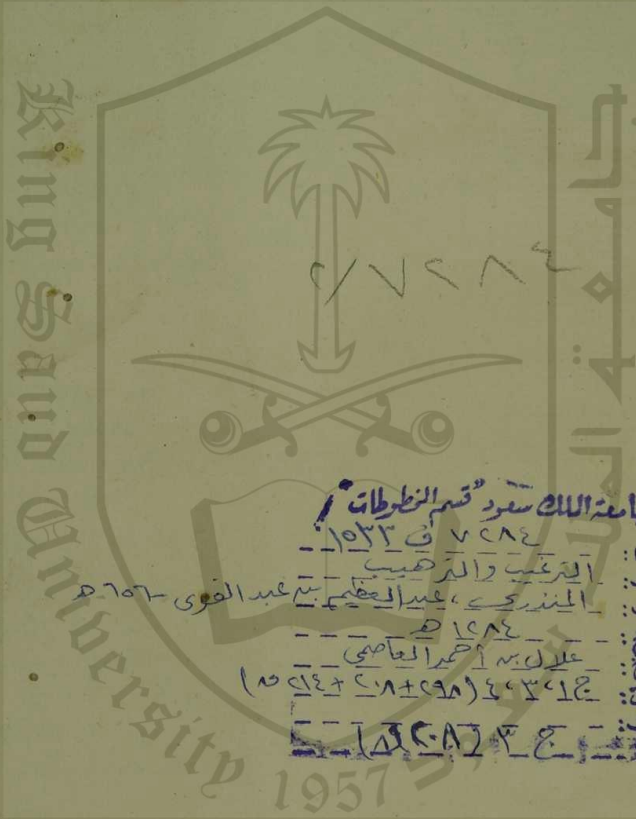 King Saud University
1957
٧٢٨٤
جامعة الملك سعود "قسم المخطوطات"
٧٢٨٤ ف ١٥٣٣
الترغيب والترهيب
المنذري، عبد العظيم بن عبد القوي - ٦٥٦ هـ
١٢٨٤ هـ
علال بن أحمد العاصمي
ج ١، ٣، ٤ (٢٩٨+٢٠٨+٢١٤ ق)
ج ٣ (٢٠٨ ق)